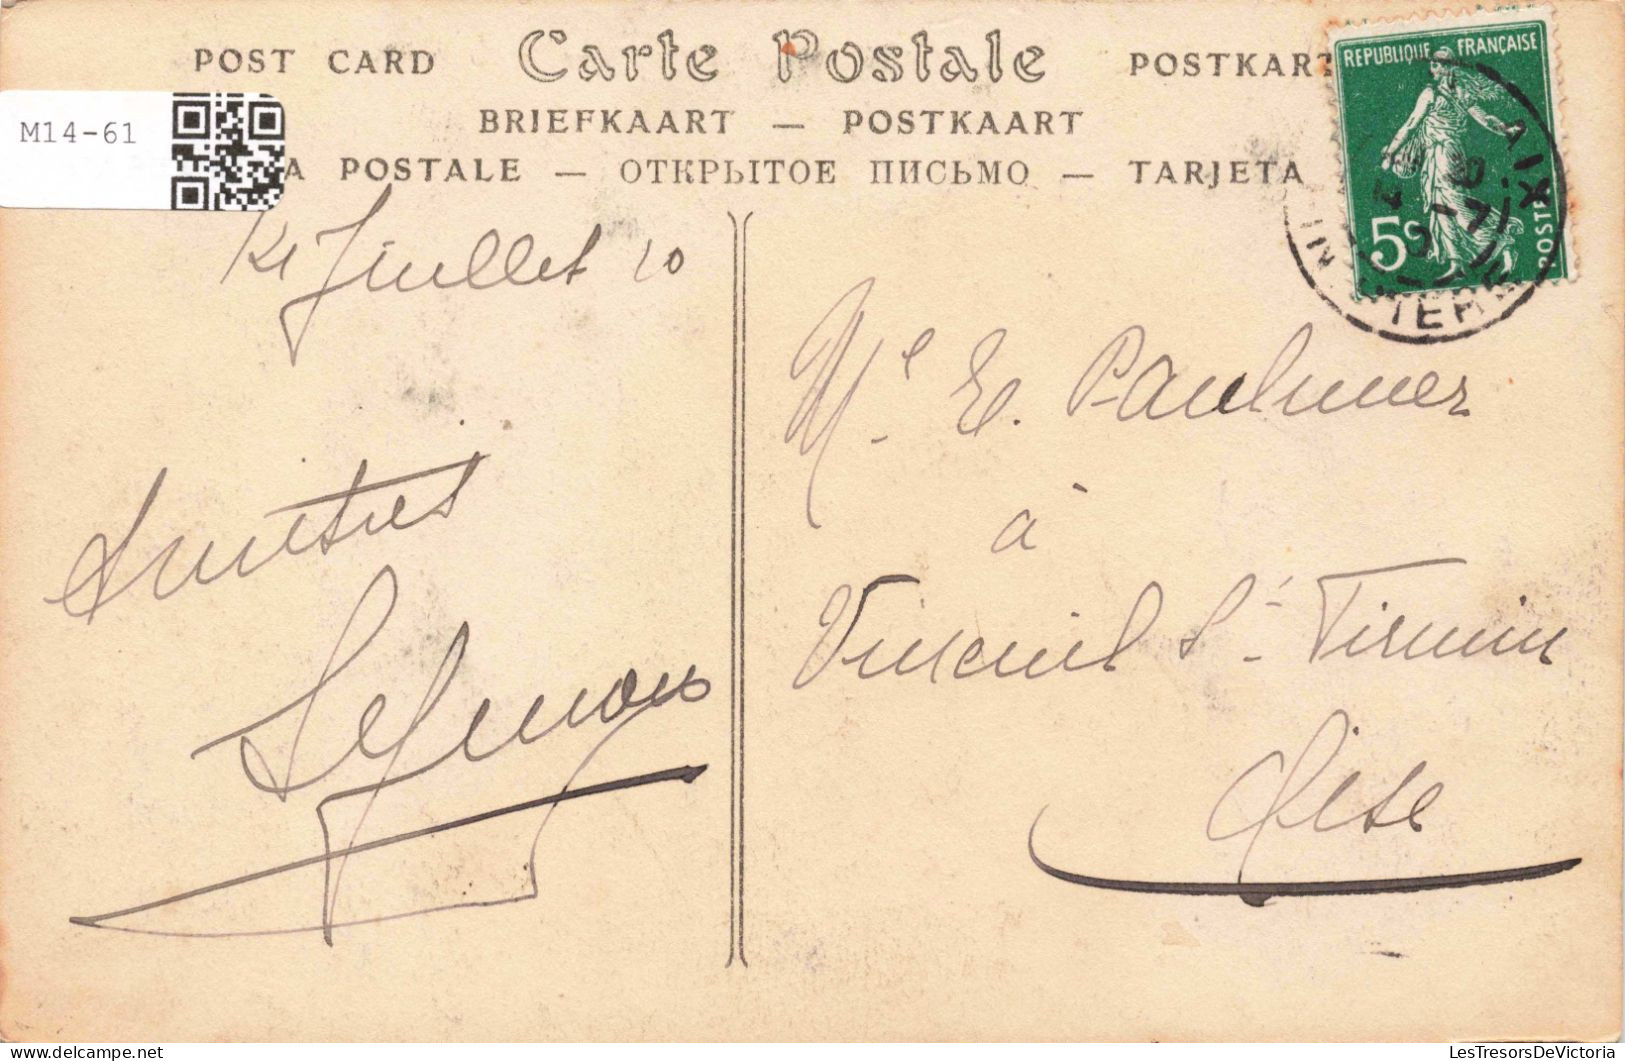 POST CARD Carte Postale POSTKART
BRIEFKAART — POSTKAART
A POSTALE — ОТКРЫТОЕ ПИСЬМО — TARJETA
M14-61
REPUBLIQUE FRANÇAISE
5c
POSTE
AIX
14 -7
14 Juillet 10
Amitiés
Mlle E. Paulmier
à
Vineuil St. Firmin
Oise
LesTresorsDeVictoria